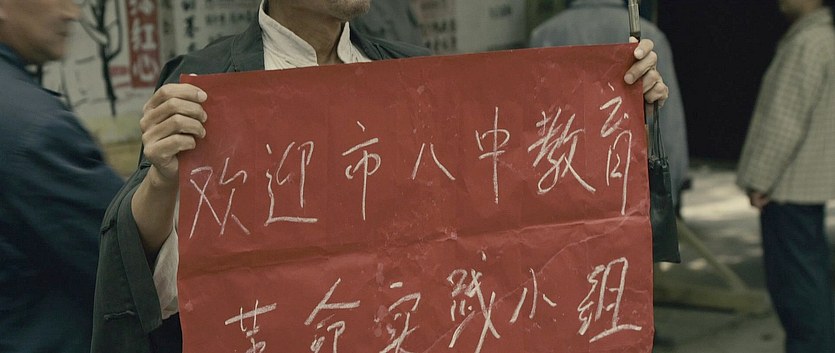 欢迎市八中教育
革命实践小组
红心